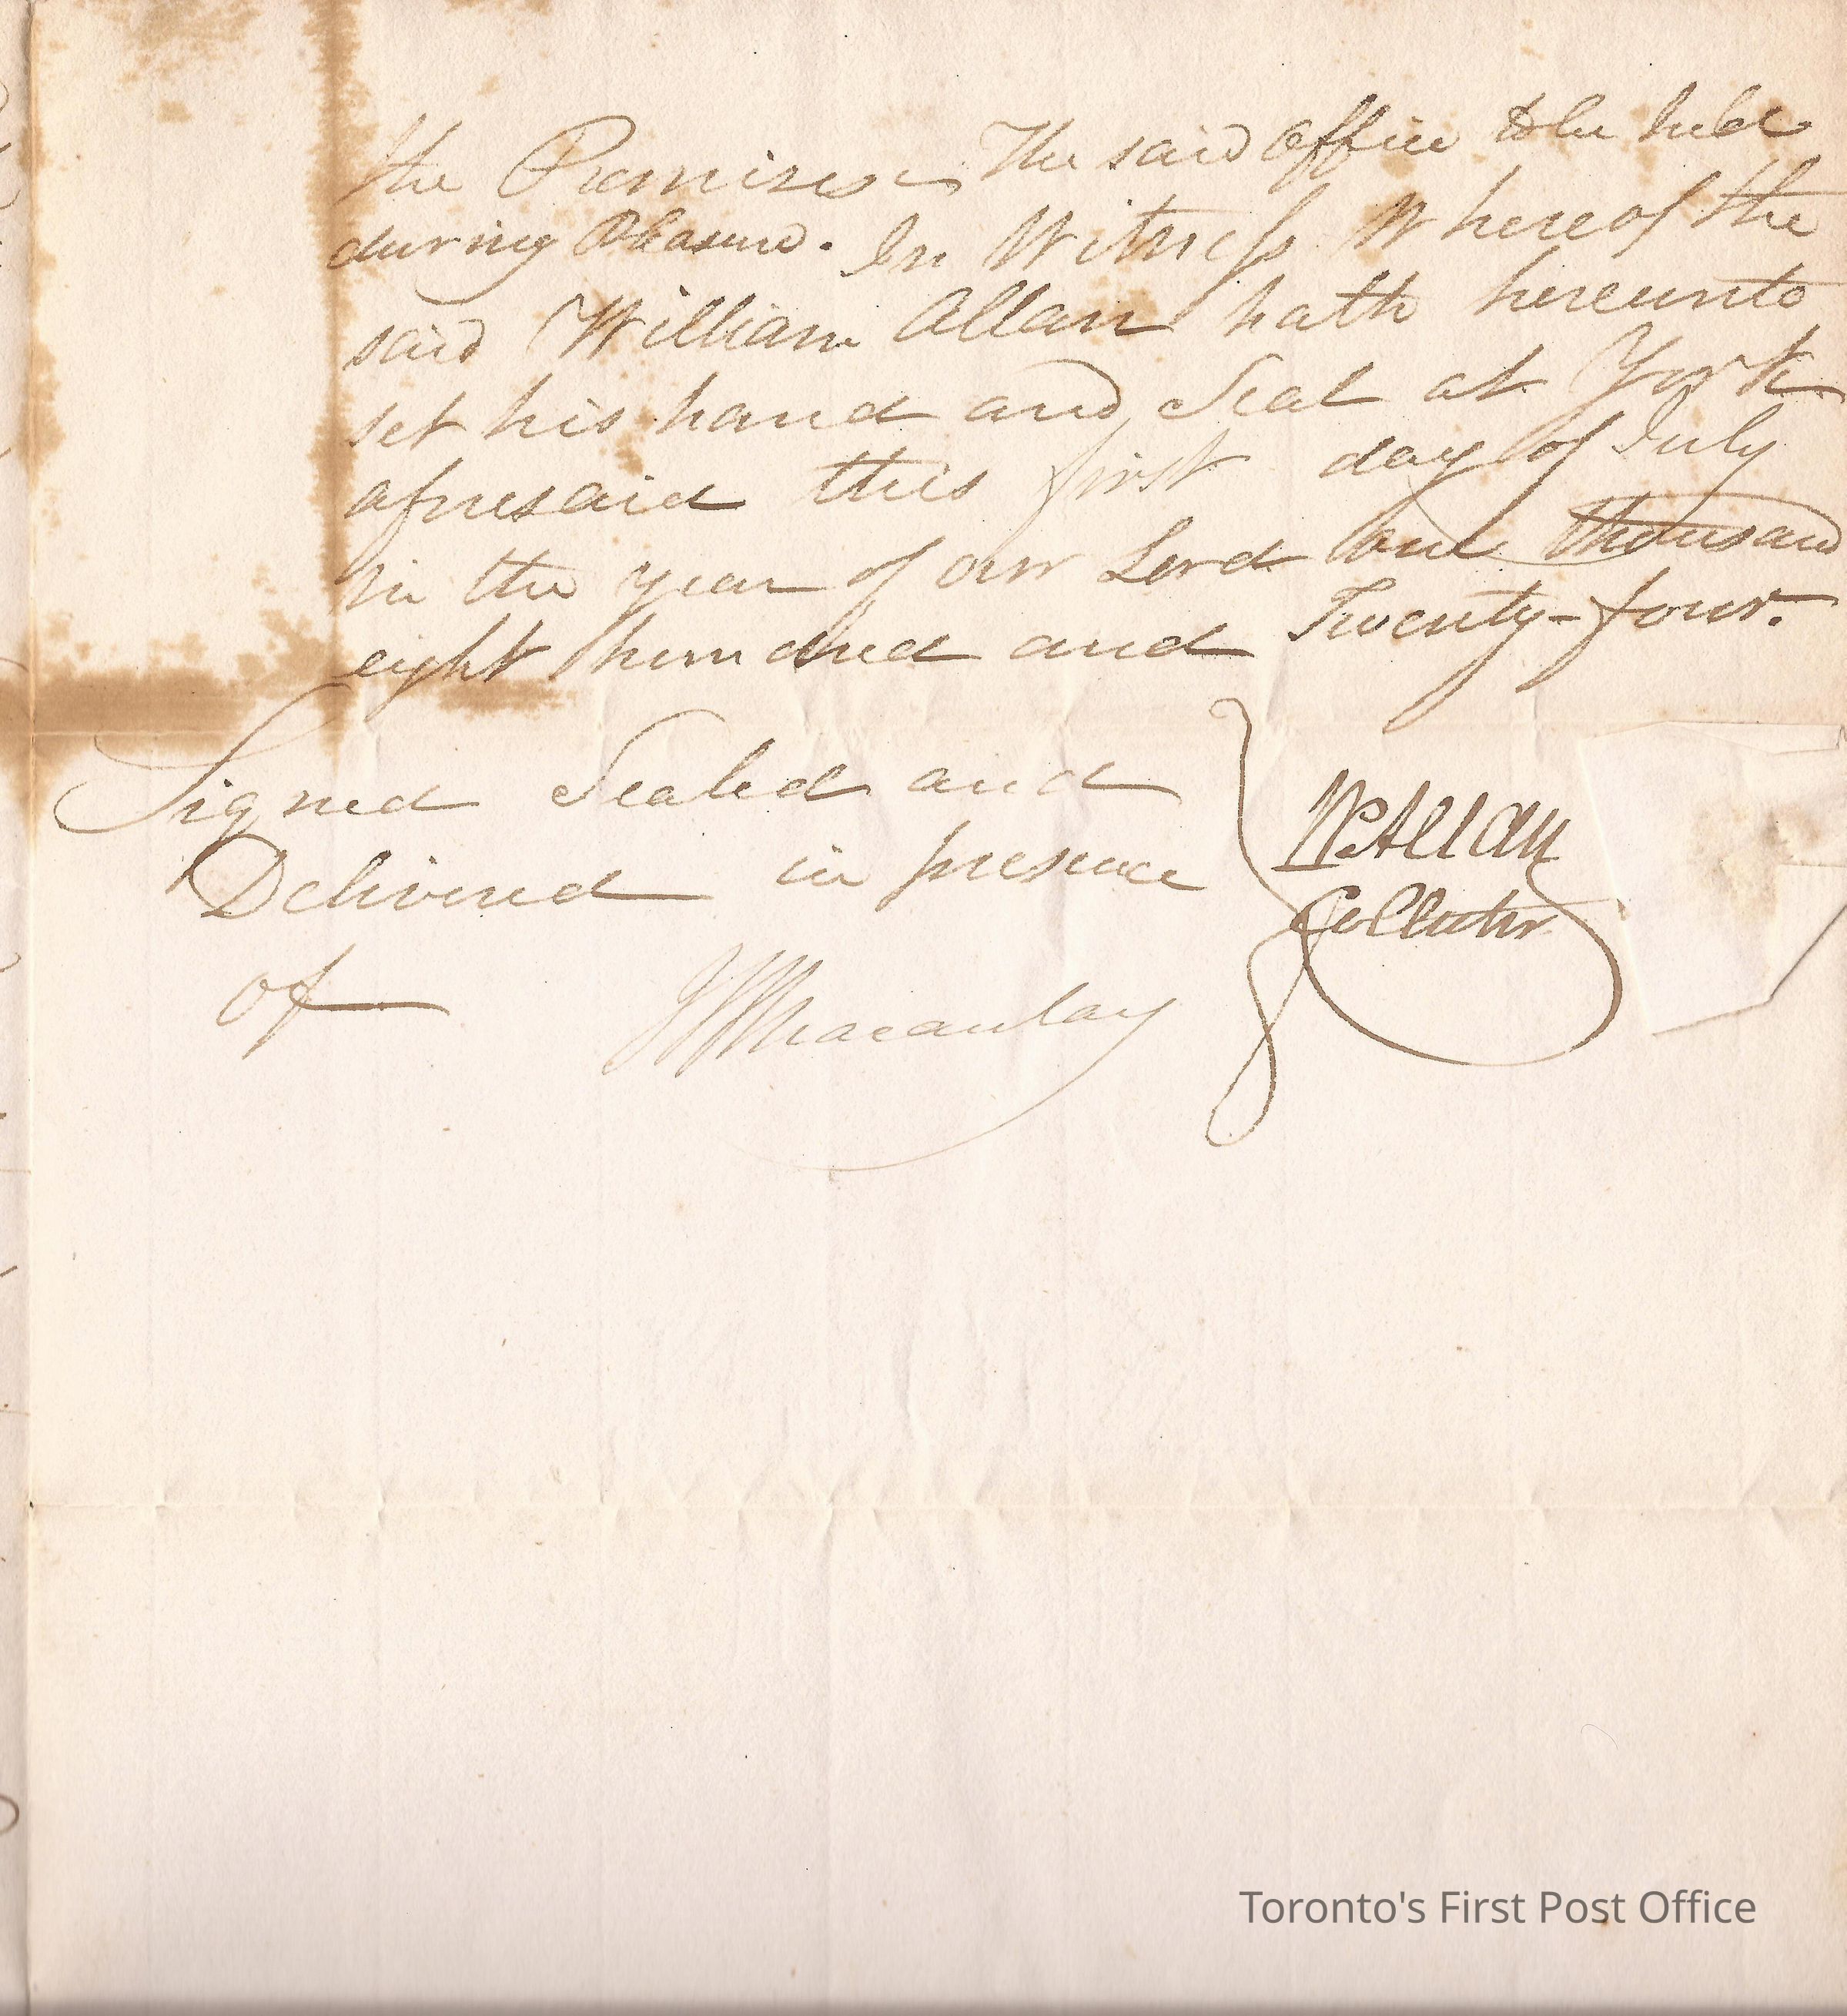 the Premises – The said Office to be held
during Pleasure. In Witness Whereof the
said William Allan hath hereunto
set his hand and Seal at York
aforesaid this first day of July
in the year of our Lord one thousand
eight hundred and Twenty-four.
Signed Sealed and
Delivered in presence
of
Macaulay
Wm Allan
Collector
Toronto's First Post Office